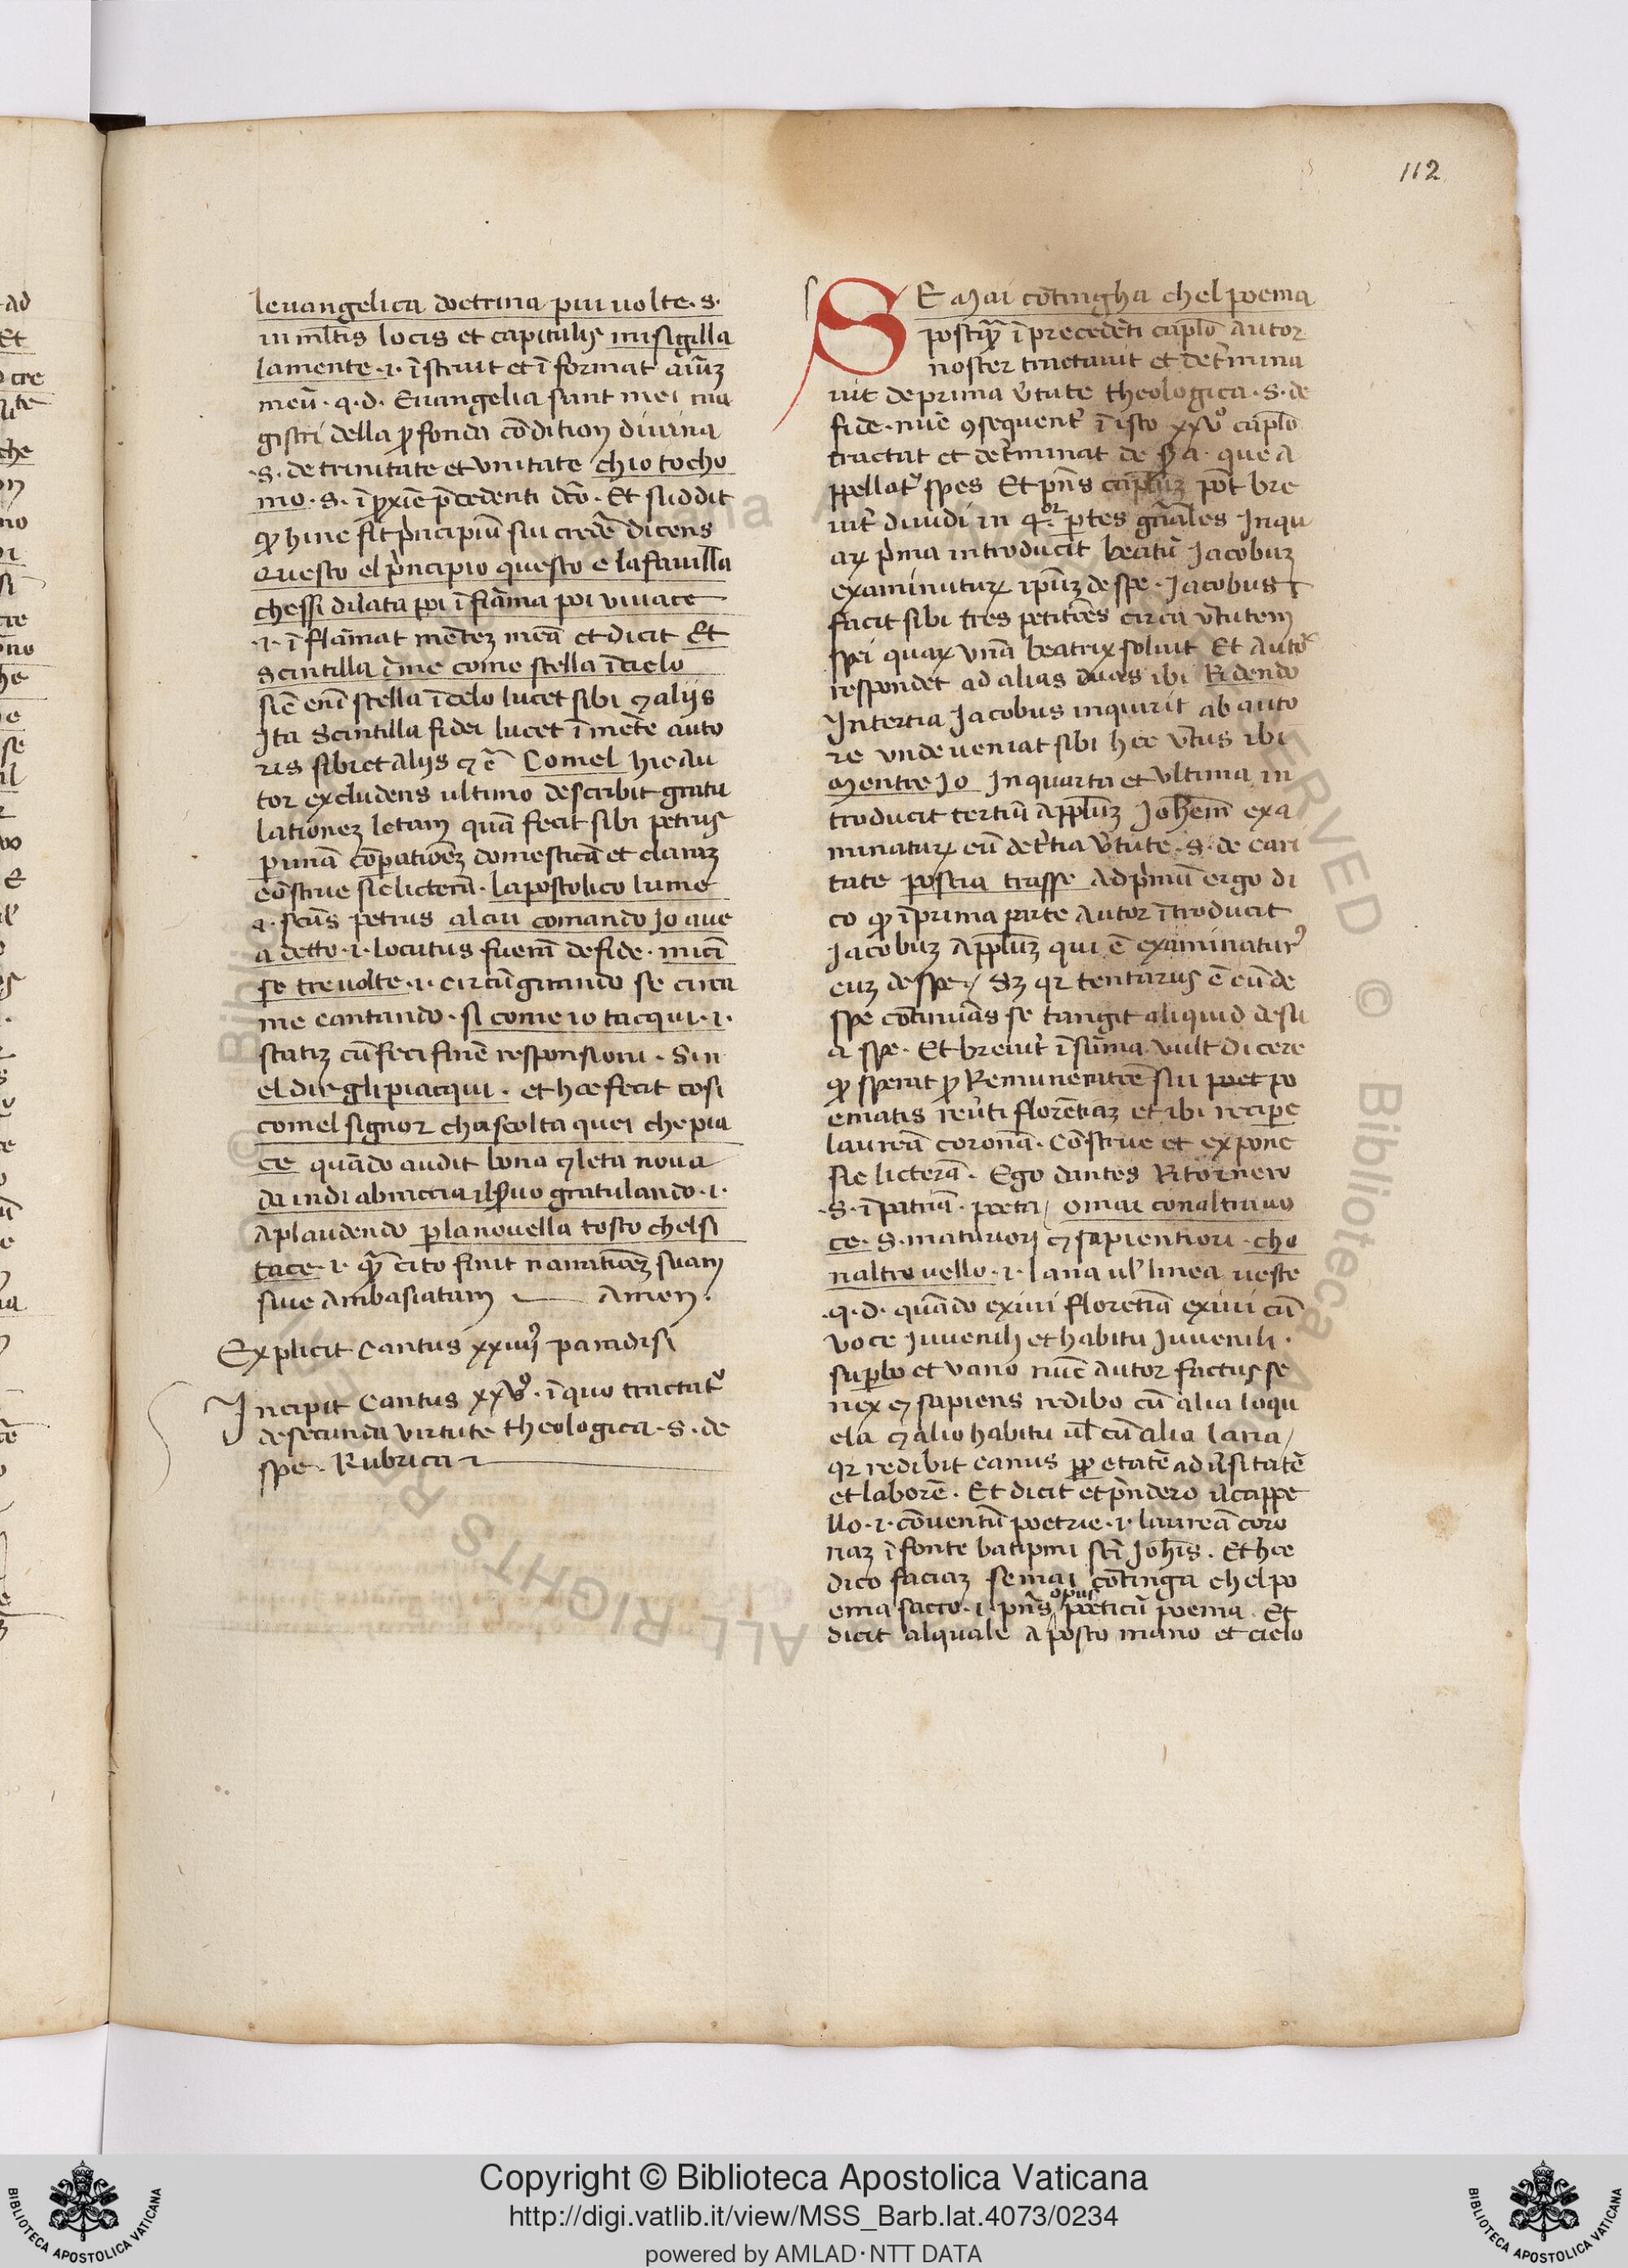 112
levangelica doctrina piu uolte .s.
in ml̄tis locis et capitulis misigilla
lamente .i. ī struit et ī format aīūz
meū . q . d . Euangelia sunt mei ma
gistri della ꝓfonda cōdition diuina
.s. de trinitate et vnitate chio tocho
mo .s. ī ꝓxīe p̄cedenti dcō . Et suddit
ꝙ hinc fit p̓ncipiū sui crede dicens
Questo el p̓ncipio questo e la fauilla
chessi dilata poi ī fiāma poi viuace
.i. ī flāmat mētez meā et dicit Et
Scintilla ī me come stella ī cielo
sic̄ enī stella ī celo lucet sibi ⁊ aliis
Ita Scintilla fidei lucet ī mēte auto
ris sibi et alijs ⁊ c̄ Comel hic au
tor excludens ultimo describit gratu
lationez letam quā fecit sibi petrus
p̱ unā cōpationēz domesticā et claraz
cōstrue sic licterā . lapostolico lume
.i. sc̄us petrus al cui comando Jo aue
a detto .i. locutus fuerā de fide . mici
se tre uolte .i. circūgirando se circa
me cantando . si come io tacqui .i.
statiz cū feci finē responsioni . Si n
el dir gli piacqui . et hoc fecit cosi
comel signor chascolta quei che pia
ce quādo audit bona ⁊ leta noua
da indi abraccia il ſ̱uo gratulando .i.
aplaudendo p̱ la nouella tosto chel si
tace .i. ꝙ̄ cito finit narratiōēz suam
siue Ambasiatam Amen .
Explicit Cantus xxiiij̊ paradisi
Incipit Cantus xxv̊ . ī quo tractat᷑
de secunda virtute theologica .s. de
spe . Rubrica
SE Mai cōtingha chel poema
postꝙ̄ ī precedēti cap̄lo Autor
noster tractauit et det̓mina
uit de prima v̓tute theologica .s. de
fide . nūc ꝯsequent᷑ ī isto xxv̊ cap̄lo
tractat et det̓minat de scd̄a . que a
ppellat᷑ spes Et pn̄s cap̄lūz pōt bre
uit̓ diuidi in q̊r p̱tes gn̄ales In qu
aꝝ p̓ma introducit beatū Jacobuz
examinaturꝝ ip̄ūz de spe . Jacobus
facit sibi tres petitiōes circa v̓tutem
spei quaꝝ vnā beatrix soluit Et Autor
respondet ad alias duas ibi Ridendo
In tertia Jacobus inquirit ab auto
re vnde ueniat sibi hec v̓tus ibi
Mentre Jo In quarta et vltima in
troducit tertiū app̄lūz Joh̄em exa
minaturꝝ eū de t̓tia v̓tute .s. de cari
tate poscia trasse Ad p̓mū ergo di
co ꝙ ī prima parte Autor ītroducit
Jacobuz app̄lūz qui ē examinatur᷑
euz de spe / Sz qr tentarus ē eū de
spe cōtinuās se tangit aliquid de su
a spe . Et breuit̓ ī sūma vult dicere
ꝙ sperat ꝓ Remuneratōe sui poet po
ematis reu̓ti florētiaz et ibi recip̱e
laureā coronā . Cōstrue et expone
sic licterā . Ego dantes Ritornero
.s. ī patriā . poeta / omai con altra uo
ce .s. maturiori ⁊ sapientiori . cho
n altro uello .i. lana ul̄ linea ueste
.q . d . quādo exiui floretiā exiui cū
voce Juuenili et habitu Juuenili .
sup̱bo et vano nūc Autor factus se
nex ⁊ sapiens redibo cū alia loqu
ela ⁊ alio habitu ul̄ cū alia lana /
qr redibit canus ꝓp etatē adu̓sitatē
et laborē . Et dicit et p̓ndero il cappe
llo .i. cōuentū poetrie .i. laureā coro
naz ī fonte batipmi sc̄i Joh̄is . Et hoc
dico faciaz se mai cōtinga chel po
ema sacro .i. pn̄s opus poeticū poema . Et
dicit al quale a posto mano et cielo
Copyright © Biblioteca Apostolica Vaticana
http://digi.vatlib.it/view/MSS_Barb.lat.4073/0234
powered by AMLAD·NTT DATA
BIBLIOTECA APOSTOLICA VATICANA
BIBLIOTECA APOSTOLICA VATICANA